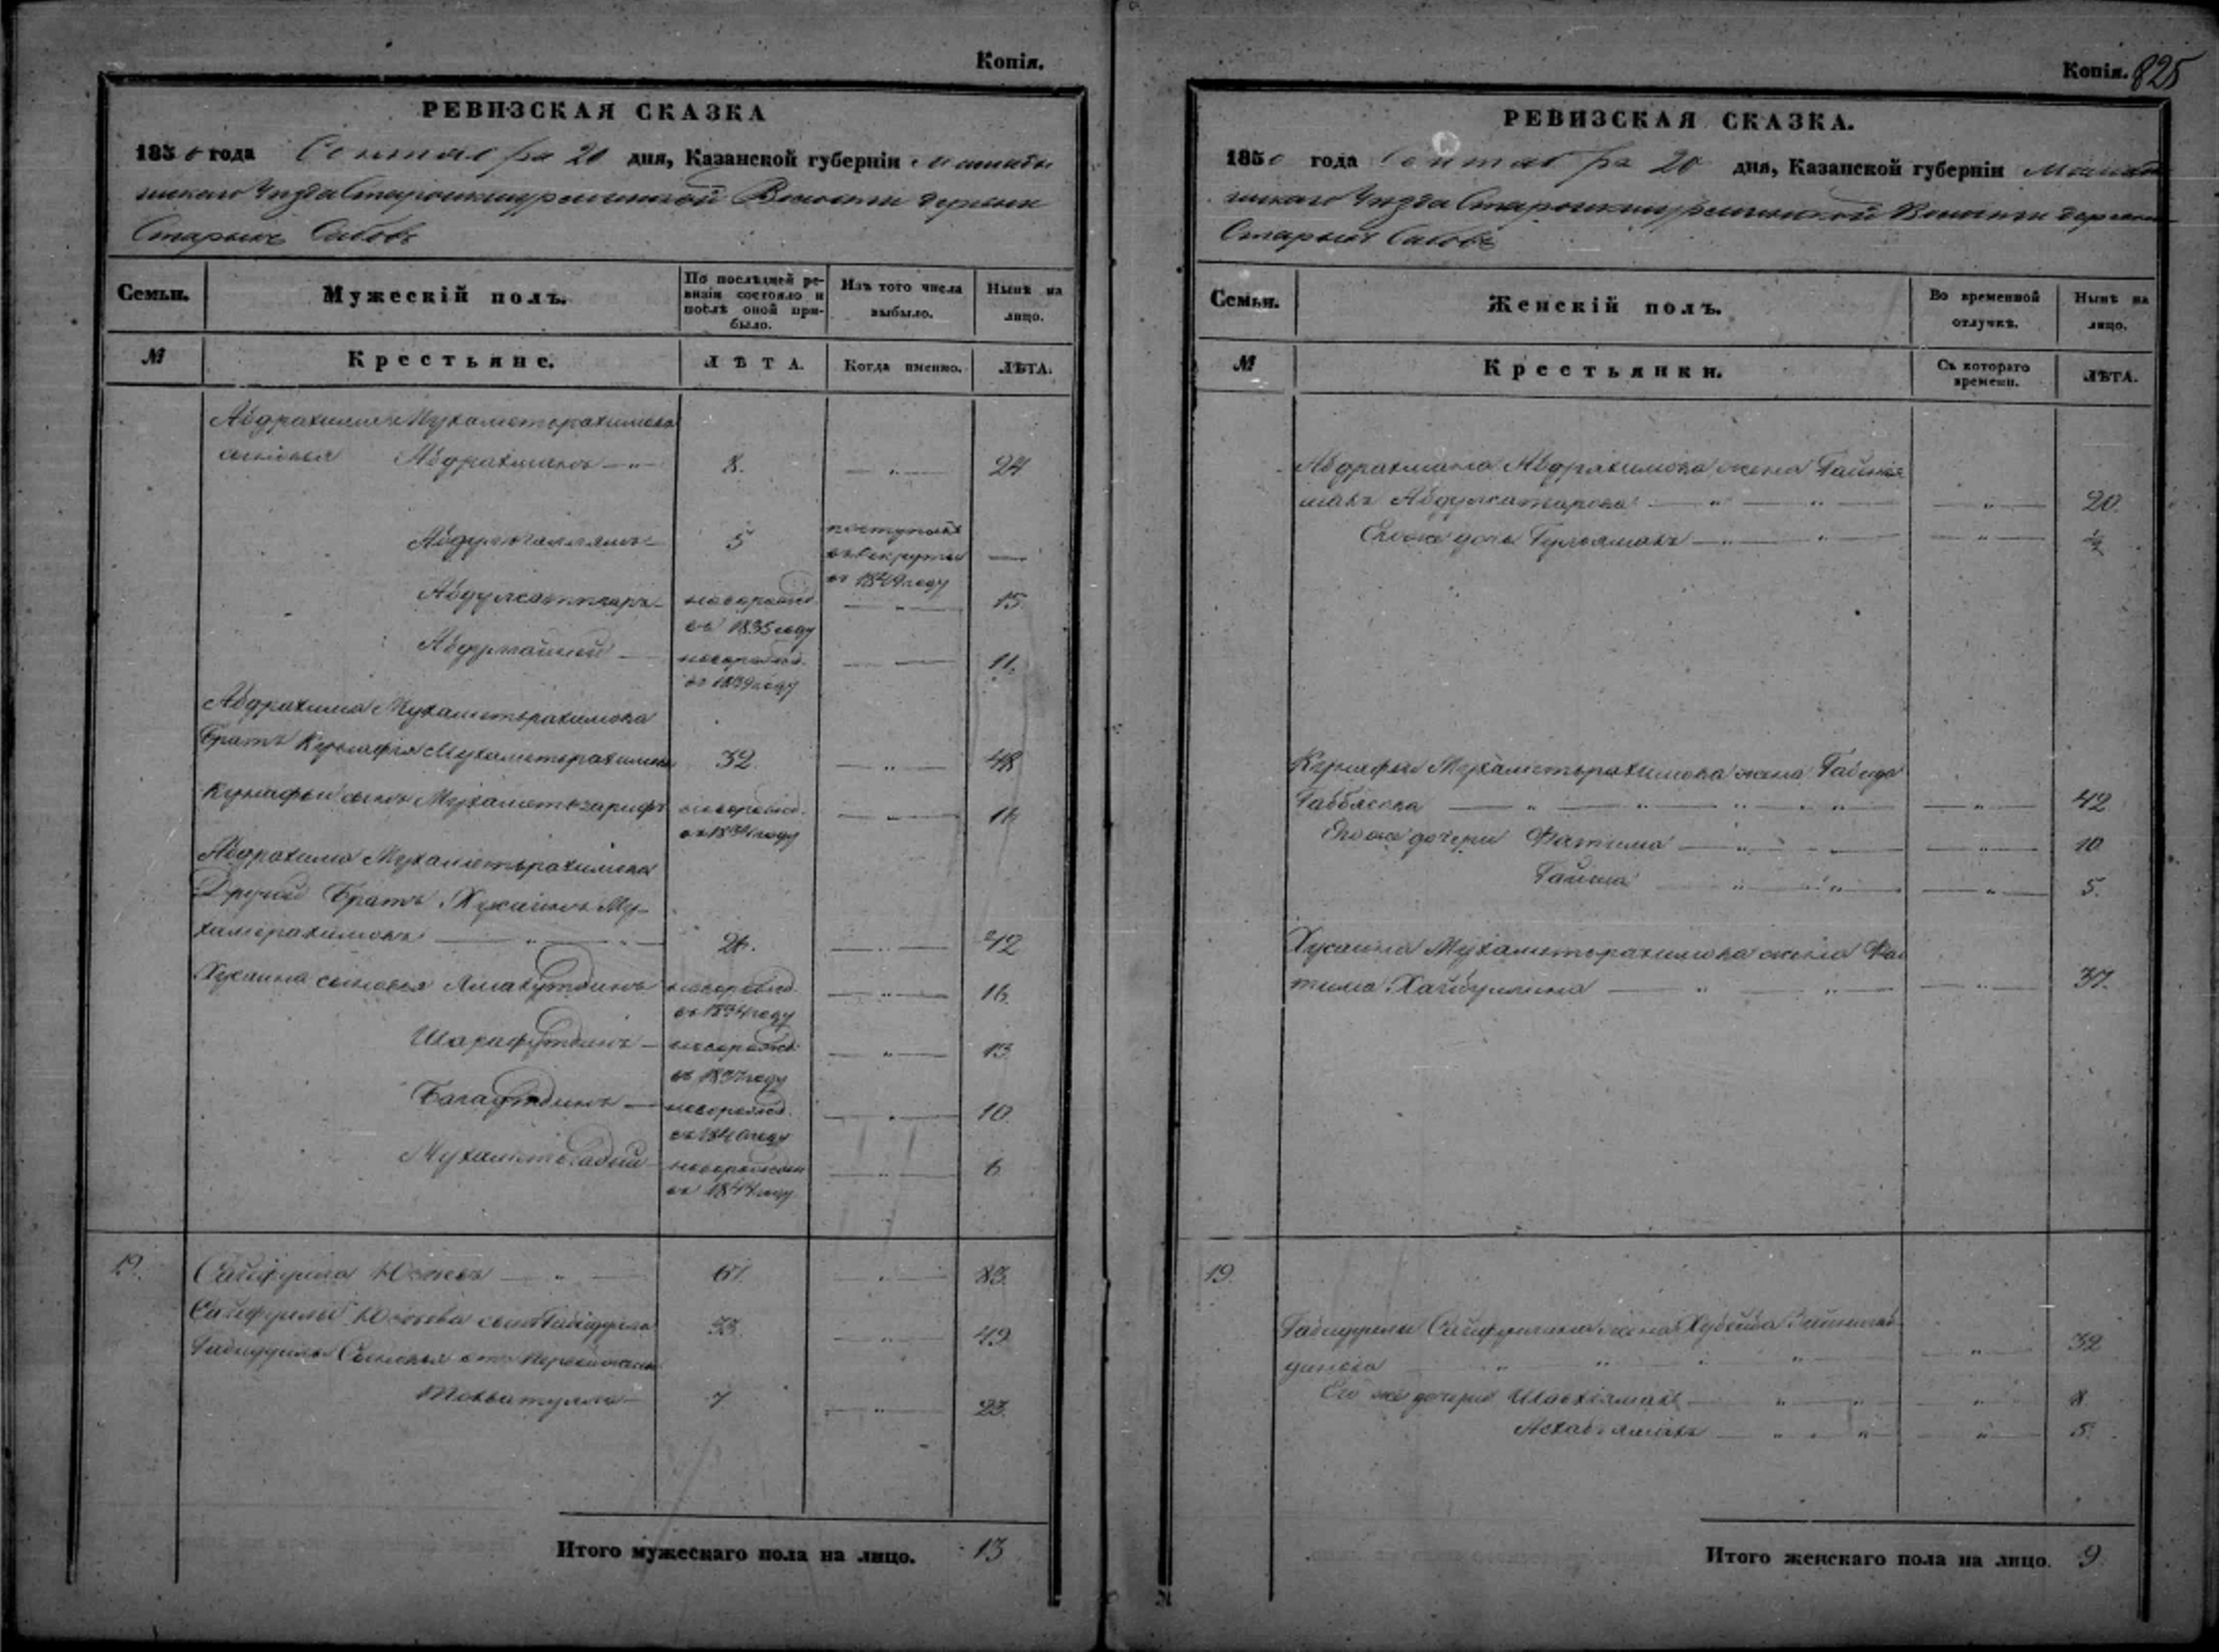 Копія.
РЕВИЗСКАЯ СКАЗКА
1850 года Сентября 20 дня, Казанской губерніи Мамады
шскаго Уезда Волости деревни
Старыхъ Сабовъ
Семьи.
Мужескій полъ.
По послѣдней ре-
визіи состояло и
послѣ оной при-
было.
Изъ того числа
выбыло.
Нынѣ на
лицо.
№
Крестьяне.
ЛѢТА.
Когда именно.
ЛѢТА.
Абдрахима Мухаметьрахимова
сыновья Абдрахманъ — „ — 8. — „ — 24
Абдул 5 поступилъ
въ рекруты —
в 1849 году
Абдулсаттаръ — новорожд. — „ — 15.
въ 1835 году
новорожд. — — 11.
въ 1839 году
Абдрахима Мухаметьрахимова
братъ Кунафія Мухаметьрахимовъ 32. — „ — 48
Кунафьи сынъ Мухаметьзарифъ новорожд. — „ — 16
въ 1834 году
Абдрахима Мухаметьрахимова
Другой братъ Хусаинъ Му-
хаметрахимовъ — „ — „ — 26. — „ — 42
Хусаина сыновья новорожд. — „ — 16.
въ 1834 году
Шарафутдинъ — новорожд. — „ — 13
въ 1837 году
Багаутдинъ — новорожд. — „ — 10.
въ 1840 году
Мухаметьсадый новорожден — „ — 6
въ 1844 году
19. Сайфулла Юзеевъ — „ — 67. — „ — 83.
Сайфуллы Юзеева сынъ Габидулла 33. — „ — 49.
Габидуллы Сыновья отъ Первой жены
7 — „ — 23.
Итого мужескаго пола на лицо. 13
Копія. 825
РЕВИЗСКАЯ СКАЗКА.
1850 года Сентября 20 дня, Казанской губерніи Мамады
шскаго Уезда Волости деревни
Старыхъ Сабовъ
Семьи.
Женскій полъ.
Во временной
отлучкѣ.
Нынѣ на
лицо.
№
Крестьянки.
Съ котораго
времени.
ЛѢТА.
Абдрахмана Абдрахимова жена
Абдулсатарова — „ — „ — — „ — 20.
Его же дочь — „ — „ — — „ — ½
Кунафьи Мухаметьрахимова жена Габида
Габбясова — „ — „ — „ — „ — — „ — 42
Его же дочери Фатима — „ — — „ — 10
— „ — „ — — „ — 5.
Хусаина Мухаметьрахимова жена Фа
тима Хайбуллина — „ — „ — — „ — 37.
19.
Габидуллы Сайфуллина жена Хубейба
динова — „ — „ — „ — — „ — 32
Его же дочери — „ — „ — „ — 8
— „ — „ — „ — 5.
Итого женскаго пола на лицо. 9.